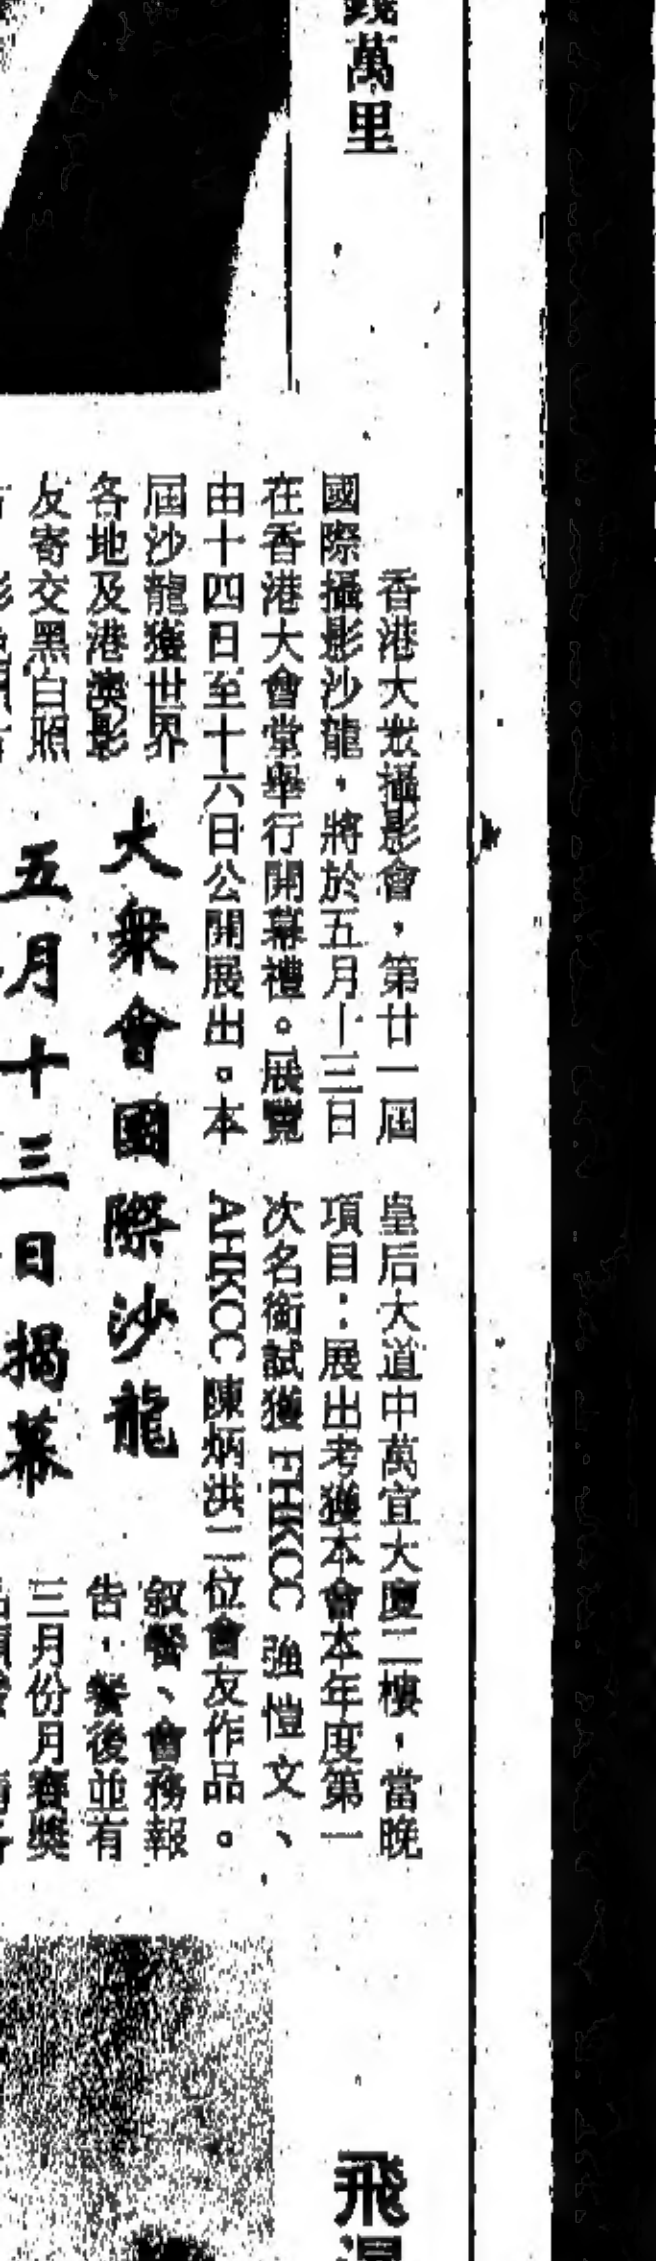 萬里
大衆會國際沙龍
五月十三日揭幕
香港大衆攝影會,第廿一屆
國際攝影沙龍,將於五月十三日
在香港大會堂舉行開幕禮。展覽
由十四日至十六日公開展出。本
屆沙龍獲世界
各地及港澳影
友寄交黑白照
皇后大道中萬宜大廈二樓,當晚
項目:展出考獲本會本年度第一
次名銜試獲 FHKCC 強愷文、
AHKCC 陳炳洪二位會友作品。
叙餐、會務報
告,餐後並有
三月份月賽獎
飛